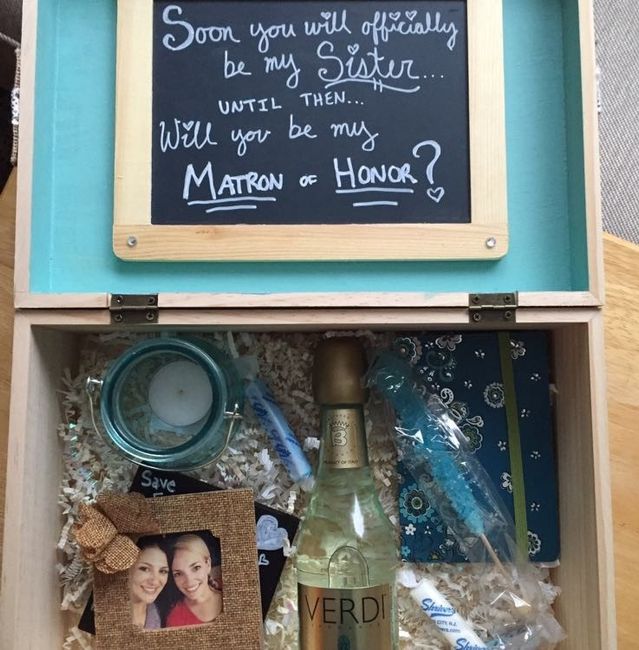 Soon you will officially
be my Sister...
UNTIL THEN...
Will you be my
MATRON OF HONOR?
3
PRODUCT OF ITALY
Save
VERDI
Shriver's
CITY, N.J.
Shriver's